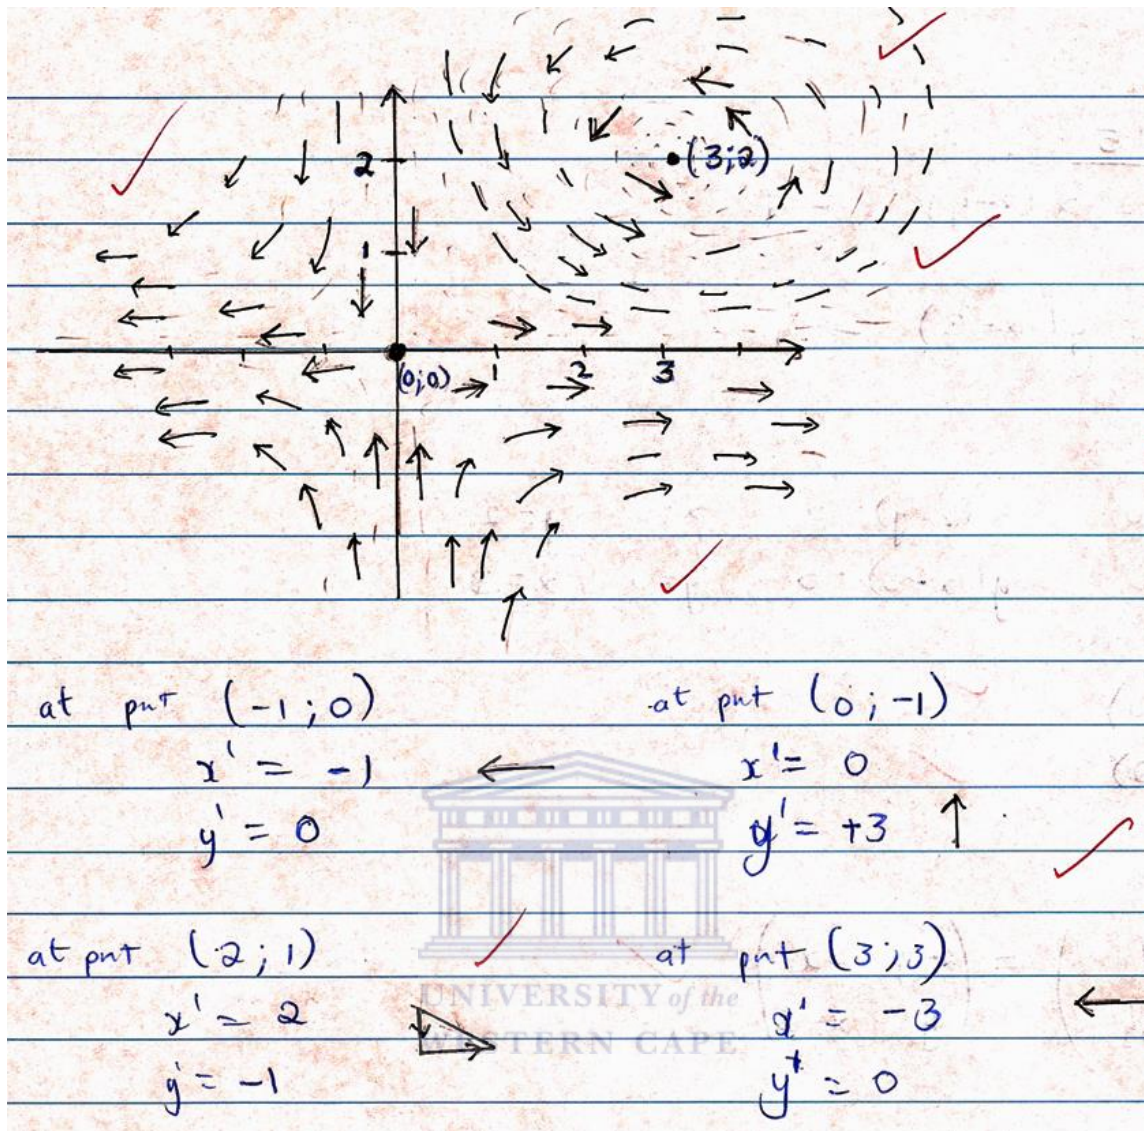 2
(3;2)
1
(0;0)
1
2
3
at pnt (-1;0)
x' = -1
y' = 0
at pnt (0;-1)
x' = 0
y' = +3
at pnt (2;1)
x' = 2
y' = -1
at pnt (3;3)
x' = -3
y' = 0
UNIVERSITY of the
WESTERN CAPE